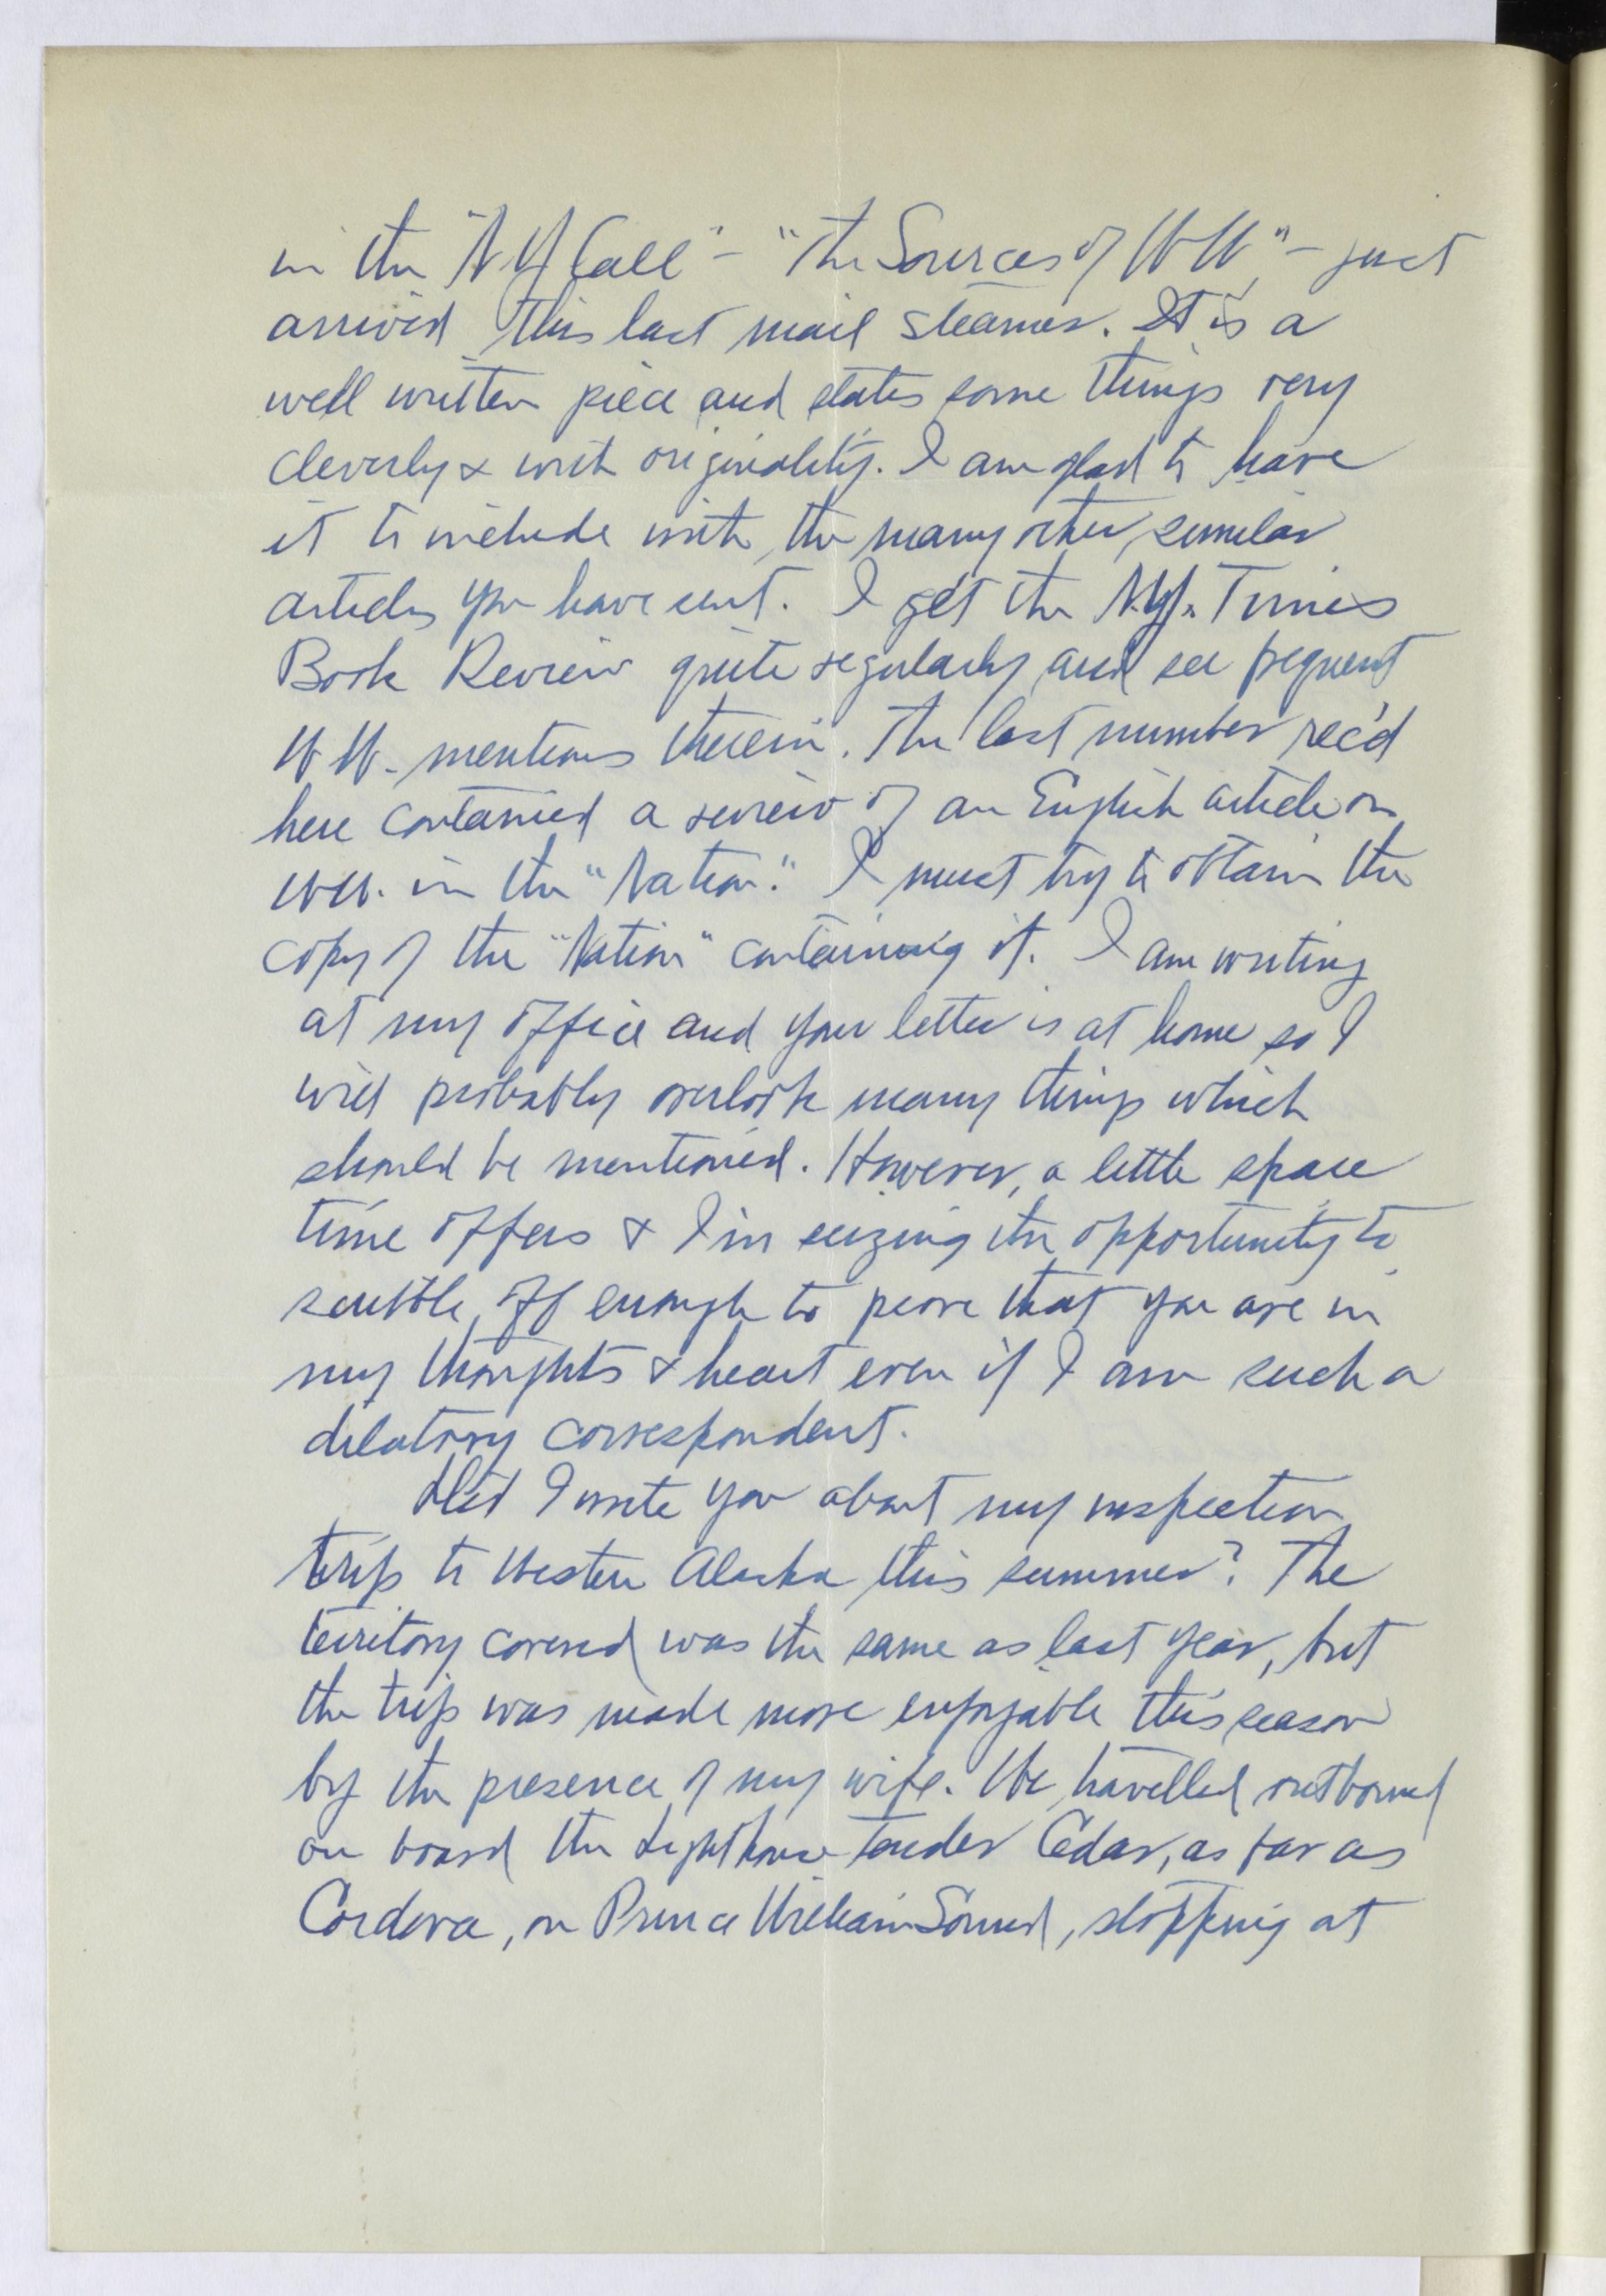 in the "N.Y. Call" - "The Sources of W W" - just
arrived this last mail steamer. It is a
well written piece and states some things very
cleverly & with originality. I am glad to have
it to include with the many other similar
articles you have sent. I get the N.Y. Times
Book Review quite regularly and see frequent
W W. mentions therein. The last number rec'd
here contained a review of an English article on
W W. in the "Nation." I must try to obtain the
copy of the "Nation" containing it. I am writing
at my office and your letter is at home so I
will probably overlook many things which
should be mentioned. However, a little space
time offers & I'm seizing the opportunity to
scribble off enough to prove that you are in
my thoughts & heart even if I am such a
dilatory correspondent.
Did I write you about my inspection
trip to Western Alaska this summer? The
territory covered was the same as last year, but
the trip was made more enjoyable this season
by the presence of my wife. We travelled outbound
on board the Lighthouse Tender Cedar, as far as
Cordova, on Prince William Sound, stopping at